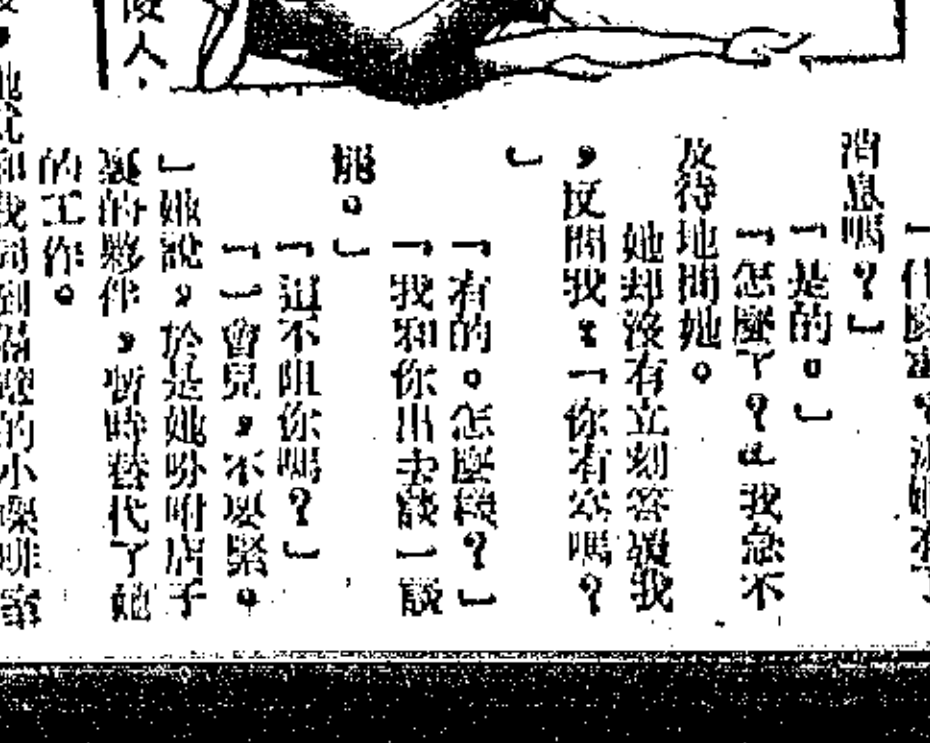 「什麼
消息嗎？」
「是的。」
「怎麼了？」我急不
及待地問她。
她却沒有立刻答覆我
，反問我：「你有空嗎？
」
「有的。怎麼樣？」
「我和你出去談一談
罷。」
「這不阻你嗎？」
「一會兒，不要緊。
」她說，於是她吩咐店子
裏的夥伴，暫時替代了她
的工作。
和我同到隔壁的小
人，